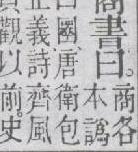 商書曰。商名
本譌
國唐衛包
義詩齊風
觀以前。史